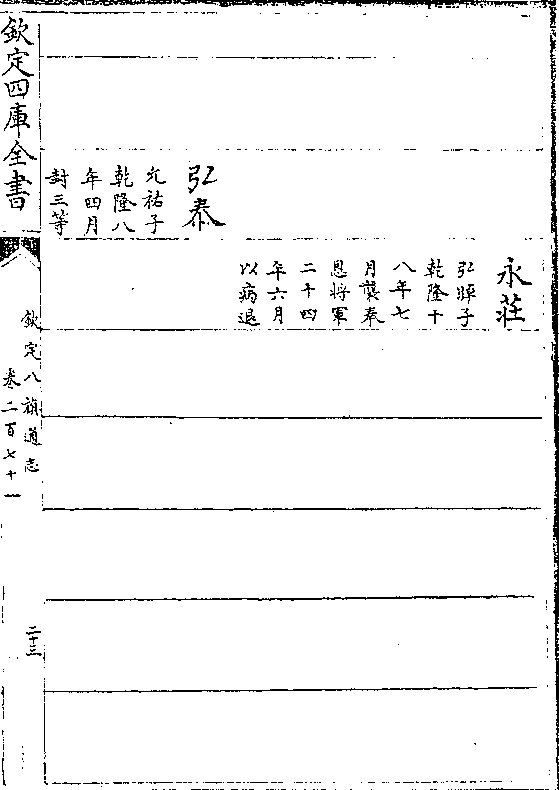 永莊
弘晫子
乾隆十
八年七
月襲奉
恩將軍
二十四
年六月
以病退
弘泰
允祐子
乾隆八
年四月
封三等
欽定四庫全書
欽定八旗通志
卷二百七十一
二十三